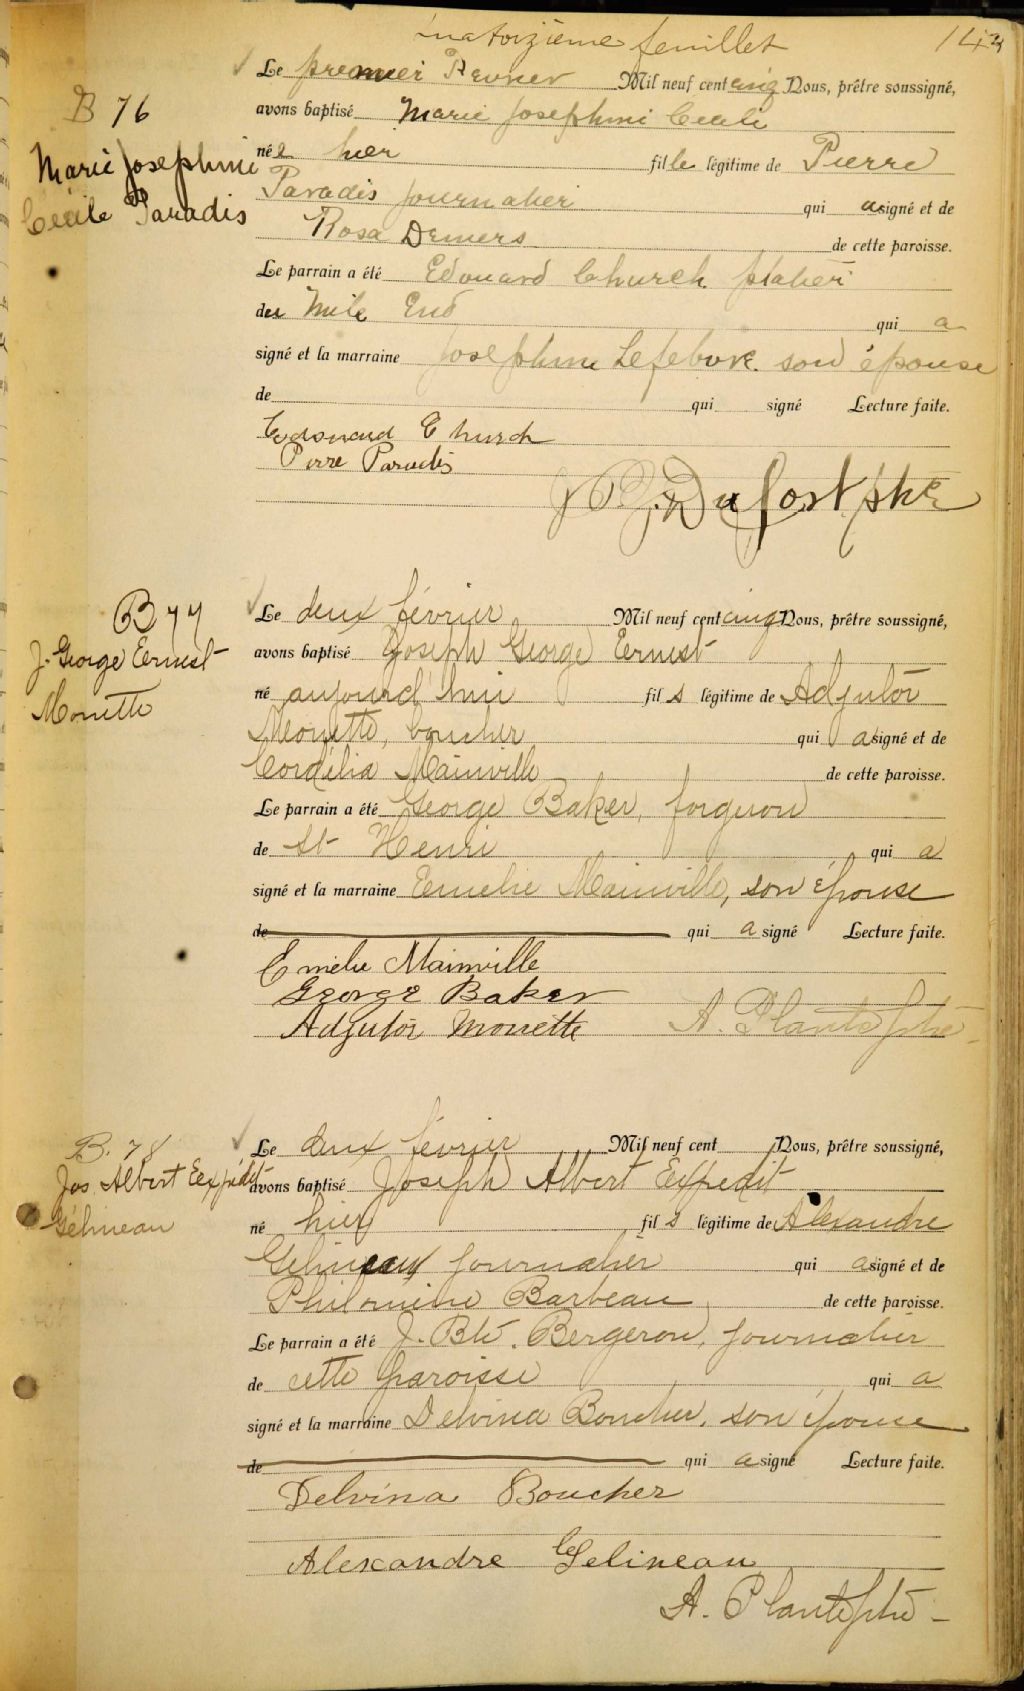 quatorzième feuillet 14
B 76
Marie Josephine
Cécile Paradis
Le premier Fevrier Mil neuf cent cinq Nous, prêtre soussigné,
avons baptisé Marie Josephine Cecile
née hier fille légitime de Pierre
Paradis journalier qui a signé et de
Rosa Demers de cette paroisse.
Le parrain a été Edouard Church platier
du Mile End qui a
signé et la marraine Josephine Lefebvre son épouse
de qui signé Lecture faite.
Edouard Church
Pierre Paradis
B 77
J. George Ernest
Monette
Le deux février Mil neuf cent cinq Nous, prêtre soussigné,
avons baptisé Joseph George Ernest
né aujourd'hui fils légitime de Adjutor
Monette, boucher qui a signé et de
Cordélia Mainville de cette paroisse.
Le parrain a été George Baker, forgeron
de St Henri qui a
signé et la marraine Emelie Mainville, son épouse
de qui a signé Lecture faite.
Emélie Mainville
George Baker
Adjutor Monette A. Plante ptre
B. 78
Jos Albert Expédit
Gélineau
Le deux février Mil neuf cent Nous, prêtre soussigné,
avons baptisé Joseph Albert Expedit
né hier fils légitime de Alexandre
Gelineau journalier qui a signé et de
Philomène Barbeau de cette paroisse.
Le parrain a été J. Bte. Bergeron, journalier
de cette paroisse qui a
signé et la marraine Delvina Boucher, son épouse
de qui a signé Lecture faite.
Delvina Boucher
Alexandre Gelineau
A. Plante ptre